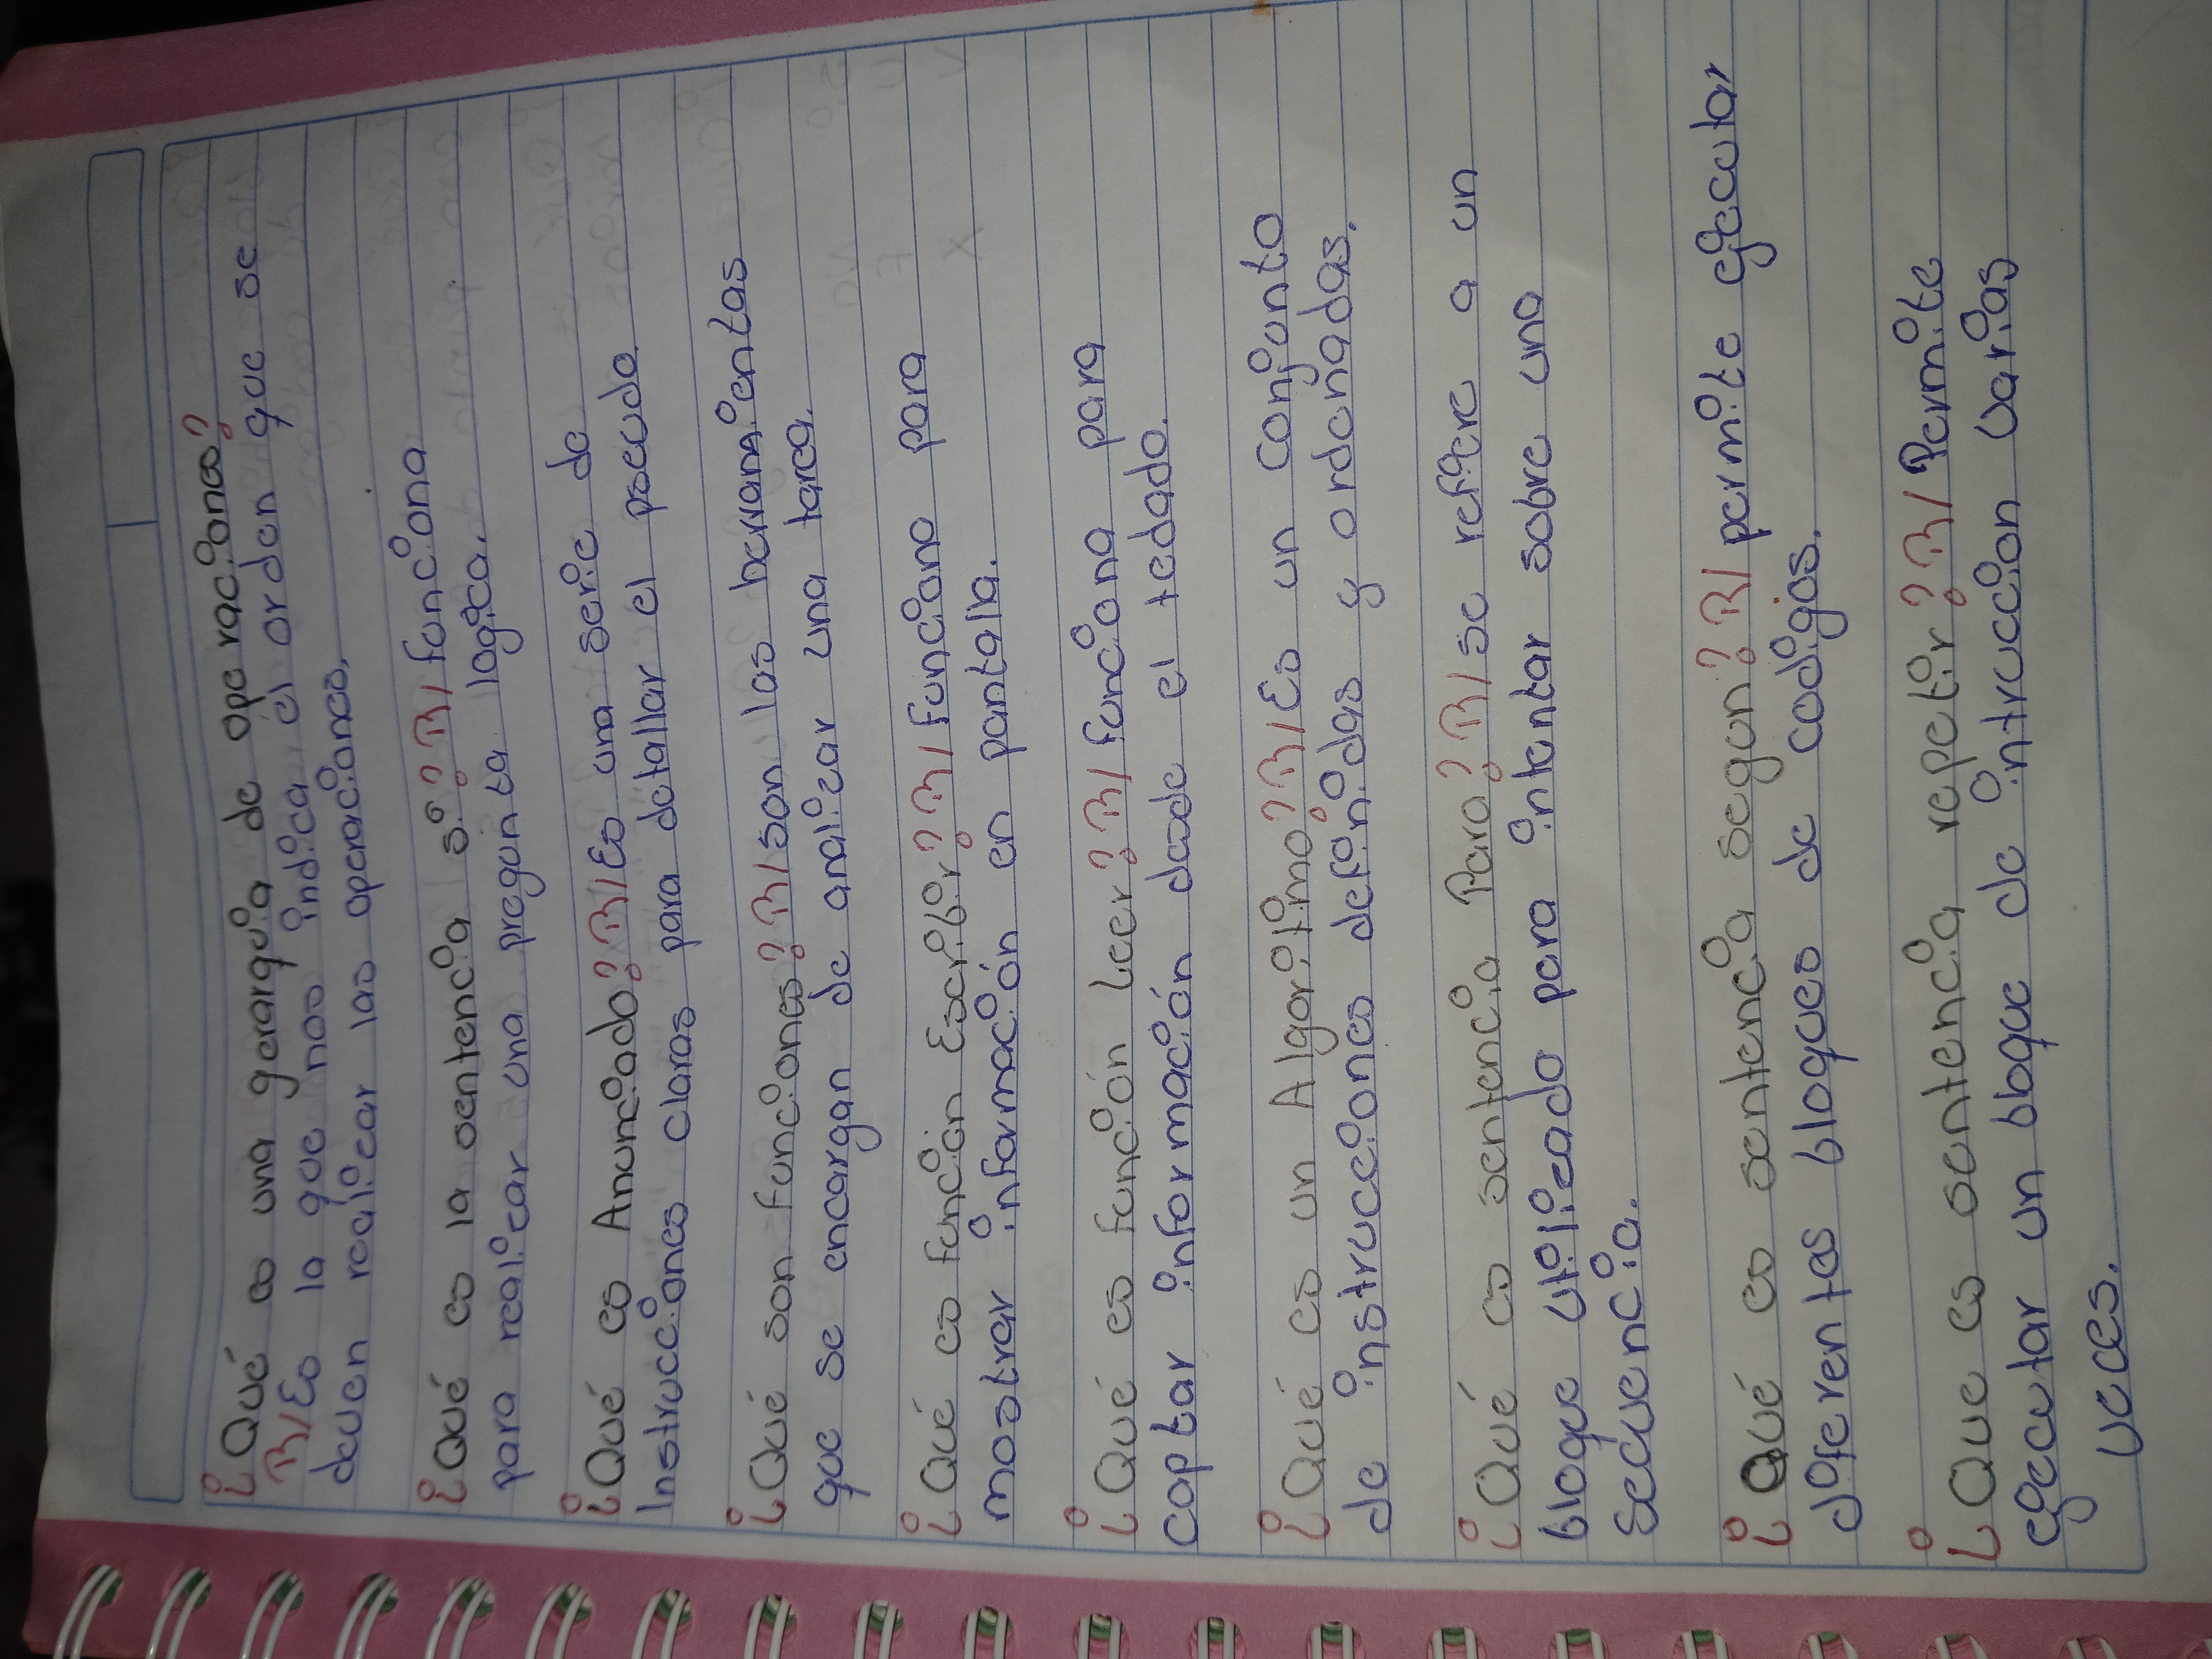 ¿Qué es una gerarquia de operaciones?
R/Es la que nos indica el orden que se
deven realizar las operaciones.
¿Qué es la sentencia si? R/ funciona
para realizar una pregunta logica.
¿Qué es Anunciado? R/Es una serie de
Instrucciones claras para detallar el pseudo
¿Qué son funciones? R/son las herramientas
que se encargan de analizar una tarea.
¿Qué es función Escribir? R/ funciona para
mostrar información en pantalla.
¿Qué es función Leer? R/ funciona para
captar información desde el teclado.
¿Qué es un Algoritmo? R/Es un conjunto
de instrucciones definidas y ordenadas.
¿Qué es sentencia Para? R/ se refiere a un
bloque utilizado para intentar sobre una
secuencia.
¿Qué es sentencia segun? R/ permite ejecutar
diferentes bloques de codigos.
¿Que es sentencia repetir? R/ Permite
ejecutar un bloque de intrucción varias
veces.